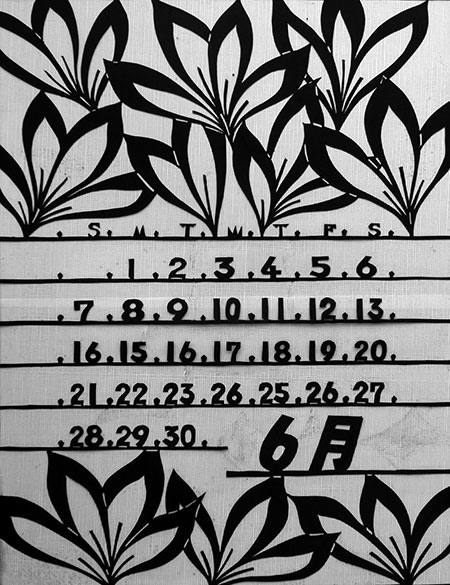 .S.M.T.W.T.F.S.
. .1.2.3.4.5.6.
.7.8.9.10.11.12.13.
.16.15.16.17.18.19.20.
.21.22.23.26.25.26.27.
.28.29.30.
6月